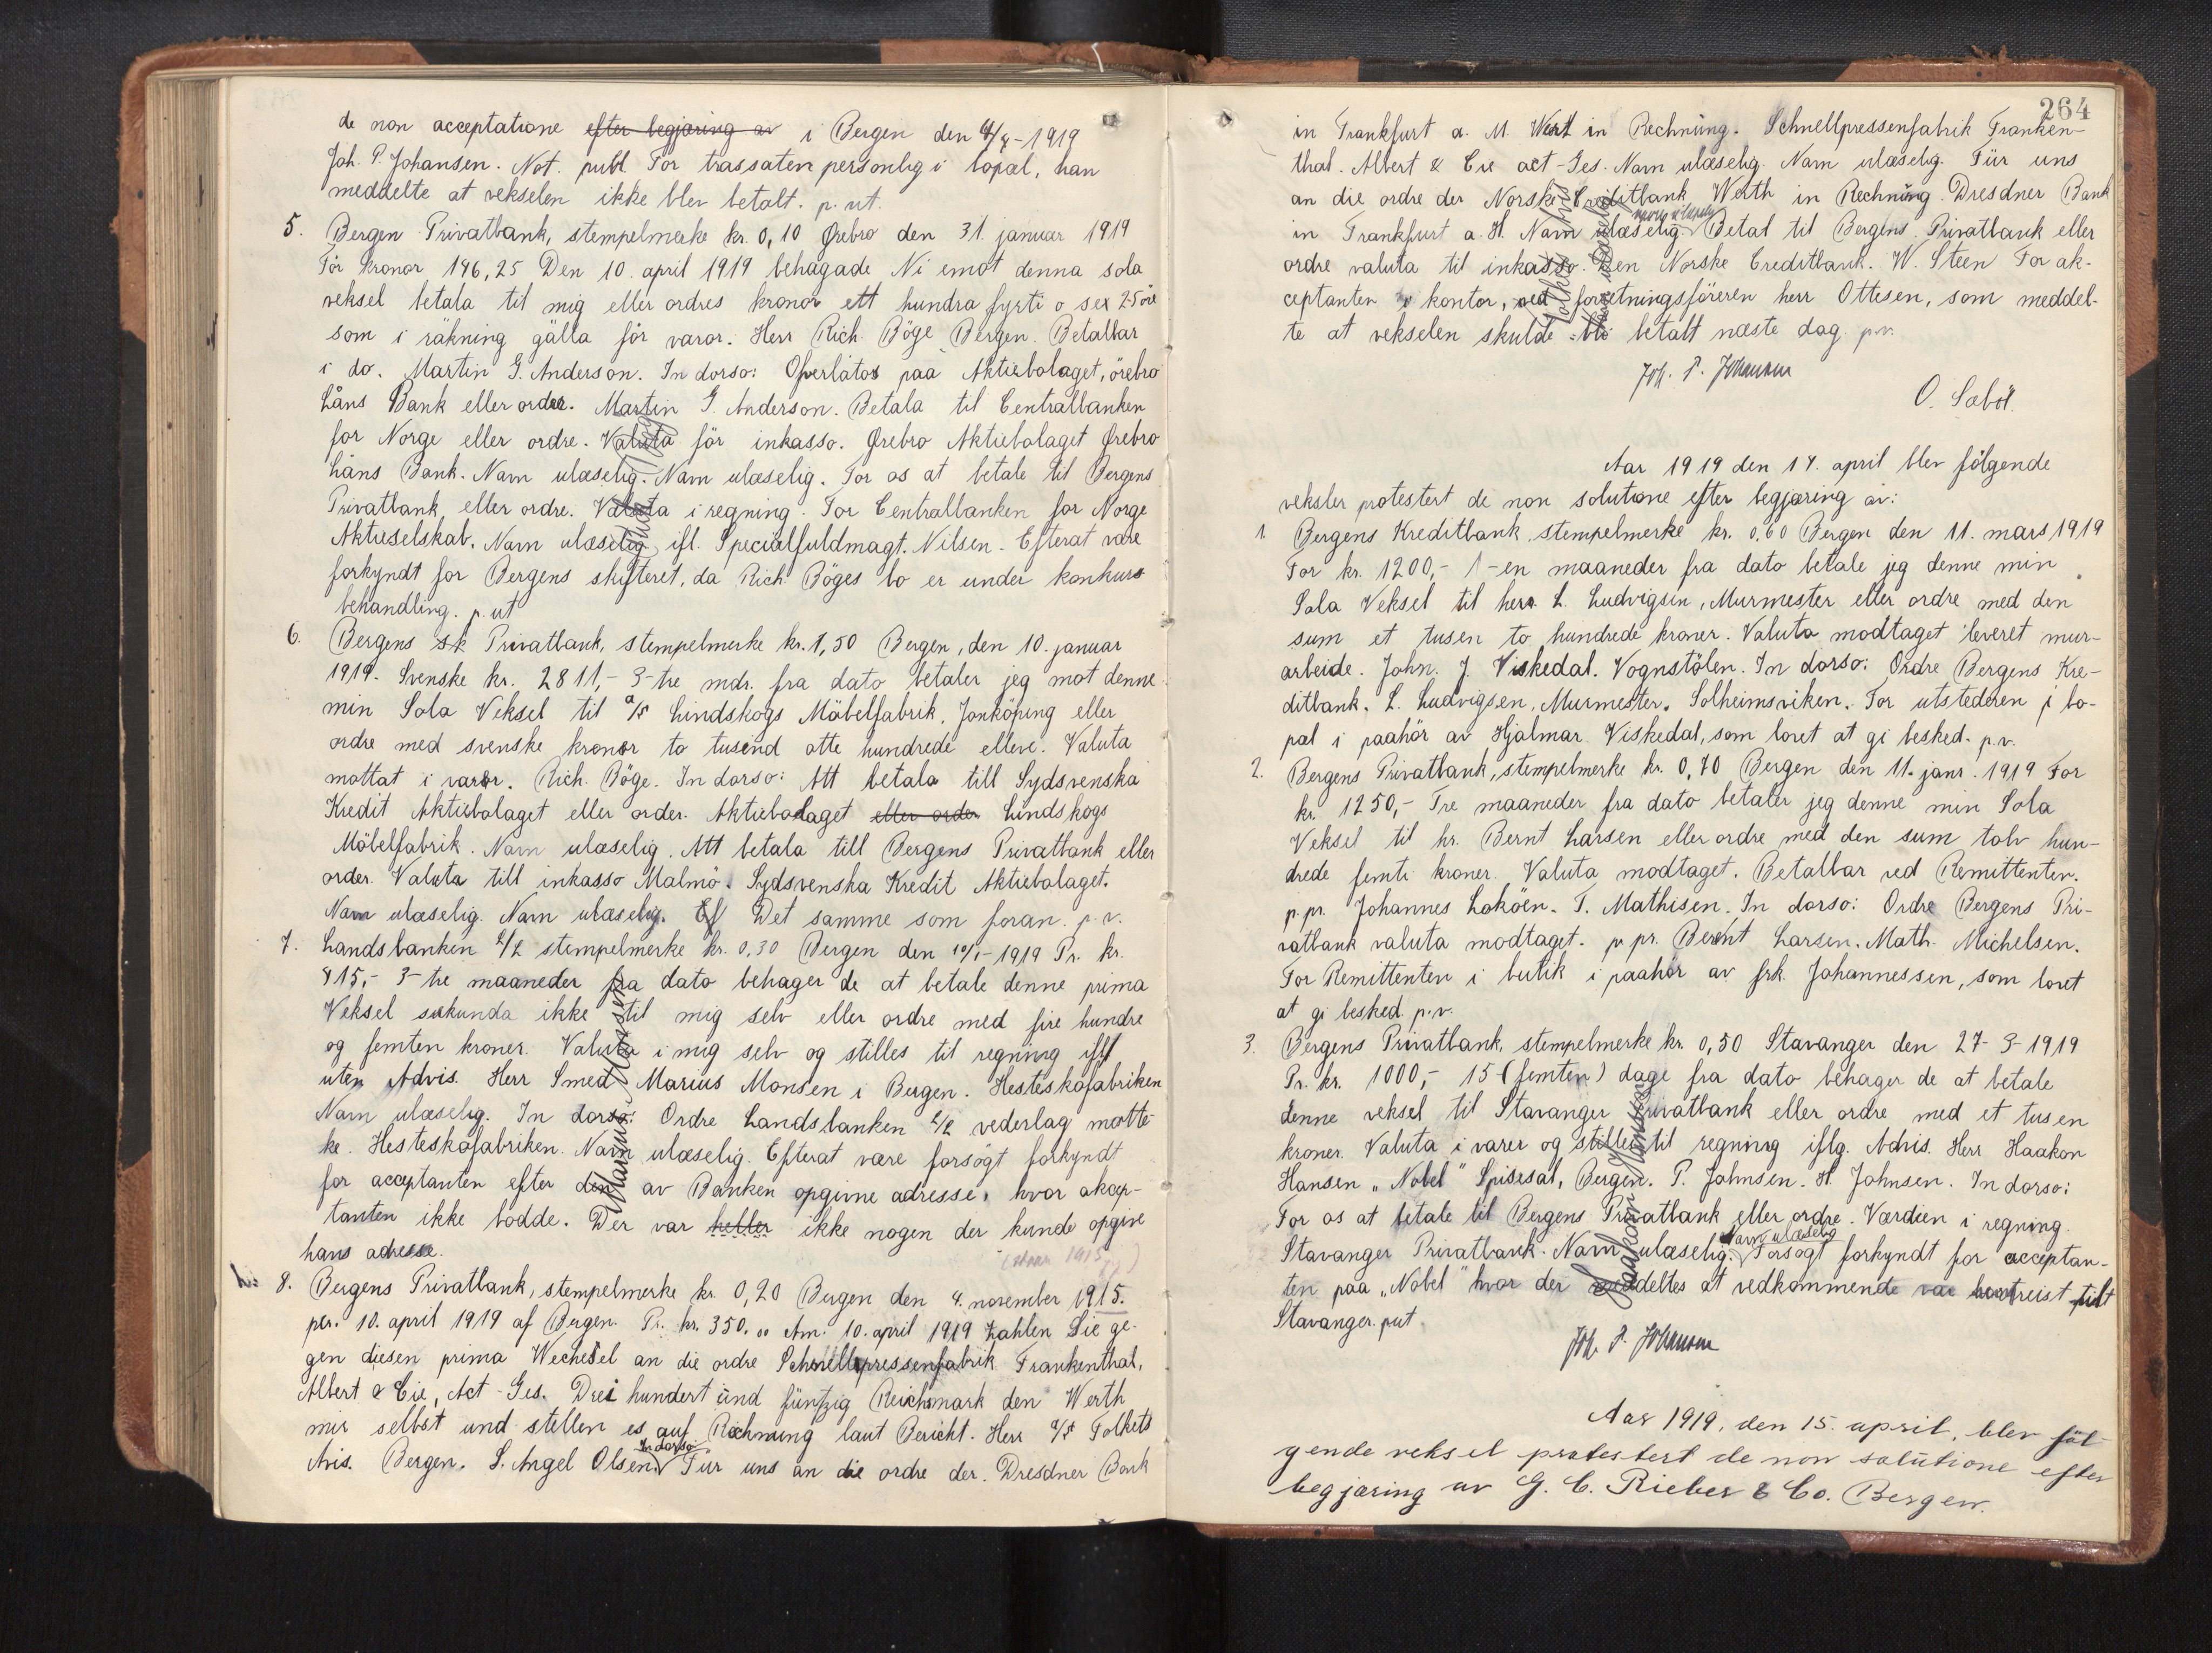 de non acceptatione efter begjæring av i Bergen den 4/4-1919
Joh. P. Johansen. Not. publ For trassaten personlig i bopæl, han
meddelte at vekselen ikke blev betalt. p. ut.
5. Bergen Privatbank, stempelmerke kr. 0,10 Ørebro den 31. januar 1919
För kronor 146,25 Den 10. april 1919 behagade Ni emot denna sola
veksel betala til mig eller ordres kronor ett hundra fyrti o sex 25 öre
som i räkning gälla för varor. Herr Rich. Böge Bergen. Betalbar
i do. Martin G. Anderson. In dorso: Överlåtos paa Aktiebolaget, örebro
Läns Bank eller order. Martin G. Anderson. Betala til Centralbanken
for Norge eller ordre. Valuta för inkasso. Ørebro Aktiebolaget Ørebro
Läns Bank. Navn ulæselig. Navn ulæselig. For os at betale til Bergens
Privatbank, eller ordre. Valuta i regning. For Centralbanken for Norge
Aktieselskab. Navn ulæselig ifl. Specialfuldmagt. Nilsen. Efterat være
forkyndt for Bergens skifteret, da Rich. Böges bo er under konkurs
behandling. p. ut
6. Bergens sk Privatbank, stempelmerke kr. 1,50 Bergen, den 10. januar
1919. Svenske kr. 2811,- 3-tre mdr. fra dato betaler jeg mot denne
min Sola Veksel til a/s Lindskogs Möbelfabrik, Jonköping eller
ordre med svenske kronor to tusind otte hundrede elleve. Valuta
mottat i varor. Rich. Böge. In dorso: Att betala till Sydsvenska
Kredit Aktiebolaget eller order. Aktiebolaget eller order Lindskogs
Möbelfabrik. Navn ulæselig. Att betala till Bergens Privatbank eller
order. Valuta till inkasso Malmö. Sydsvenska Kredit Aktiebolaget.
Navn ulæselig. Navn ulæselig. Ef Det samme som foran. p. v.
7. Landsbanken A/L stempelmerke kr. 0,30 Bergen den 10/1-1919 Pr. kr.
415,- 3-tre maaneder fra dato behager de at betale denne prima
Veksel sekunda ikke til mig selv eller ordre med fire hundre
og femten kroner. Valuta i mig selv og stilles til regning iflf
uten Advis. Herr Smed Marius Monsen i Bergen. Hesteskofabriken
Navn ulæselig. In dorso: Ordre Landsbanken A/L vederlag motte
ke. Hesteskofabriken. Navn ulæselig. Efterat være forsögt forkyndt
for acceptanten efter den av Banken opgivne adresse, hvor akcep-
tanten ikke bodde. Der var heller ikke nogen der kunde opgive
hans adresse.
8. Bergens Privatbank, stempelmerke kr. 0,20 Bergen den 4. november 1915.
per. 10. april 1919 af Bergen. Pr. kr. 350.00 Am. 10. april 1919 zahlen Sie ge-
gen diesen prima Wechsel an die ordre Schnellpressenfabrik Frankenthal,
Albert & Cie, Act-Ges. Drei hundert und fünfzig Reichsmark den Werth
mir selbst und stellen es auf Rechnung laut Bericht. Herr A/S Folkets
Avis. Bergen. S. Angel Olsen. In dorso: Für uns an die ordre der. Dresdner Bank
264
in Frankfurt a. M. Wert in Rechnung. Schnellpressenfabrik Franken-
thal. Albert & Cie act-Ges. Navn ulæselig. Navn ulæselig. Für uns
an die ordre der Norske Creditbank Werth in Rechnung. Dresdner Bank
in Frankfurt a. M. Navn ulæselig. Navn ulæselig Betal til Bergens Privatbank eller
ordre valuta til inkasso. Den Norske Creditbank. W. Steen For ak-
ceptanten i kontor, ved forretningsföreren herr Ottesen, som meddel-
te at vekselen skulde bli betalt næste dag. p.v.
Joh. P. Johansen
O. Sæböl.
Aar 1919 den 14. april blev fölgende
veksler protestert de non solutione efter begjæring av:
1. Bergens Kreditbank, stempelmerke kr. 0,60 Bergen den 11. mars 1919
For kr. 1200,- 1-en maaneder fra dato betale jeg denne min
Sola Veksel til herr L. Ludvigsen, Murmester eller ordre med den
sum et tusen to hundrede kroner. Valuta modtaget leveret mur-
arbeide. John. J. Viskedal. Vognstölen. In dorso: Ordre Bergens Kre-
ditbank. L. Ludvigsen, Murmester. Solheimsviken. For utstederen i bo-
pæl i paahör av Hjalmar Viskedal, som lovet at gi besked. p.v.
2. Bergens Privatbank, stempelmerke kr. 0,70 Bergen den 11. janr. 1919 For
kr. 1250,- Tre maaneder fra dato betaler jeg denne min Sola
Veksel til hr. Bernt Larsen eller ordre med den sum tolv hun-
drede femti kroner. Valuta modtaget. Betalbar ved Remittenten.
p. pr. Johannes Laköen. T. Mathisen. In dorso: Ordre Bergens Pri-
vatbank valuta modtaget. p. pr. Bernt Larsen. Math. Michelsen.
For Remittenten i butik i paahör av frk. Johannessen, som lovet
at gi besked. p.v.
3. Bergens Privatbank, stempelmerke kr. 0,50 Stavanger den 27-3-1919
Pr. kr. 1000,- 15 (femten) dage fra dato behager de at betale
denne veksel til Stavanger Privatbank eller ordre med et tusen
kroner. Valuta i varer og stilles til regning iflg. Advis. Herr Haakon
Hansen "Nobel" Spisesal, Bergen. P. Johnsen. H. Johnsen. In dorso:
For os at betale til Bergens Privatbank eller ordre. Værdien i regning.
Stavanger Privatbank. Navn ulæselig. Navn ulæselig Forsögt forkyndt for acceptan-
ten paa "Nobel" hvor der meddeltes at vedkommende var bortreist til
Stavanger. p.ut.
Joh. P. Johansen
Aar 1919, den 15. april, blev föl-
gende veksel protestert de non solutione efter
begjæring av G. C. Rieber & Co. Bergen.